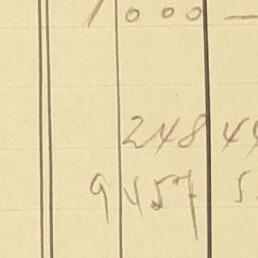 1 000 —
248 44
9 457 5